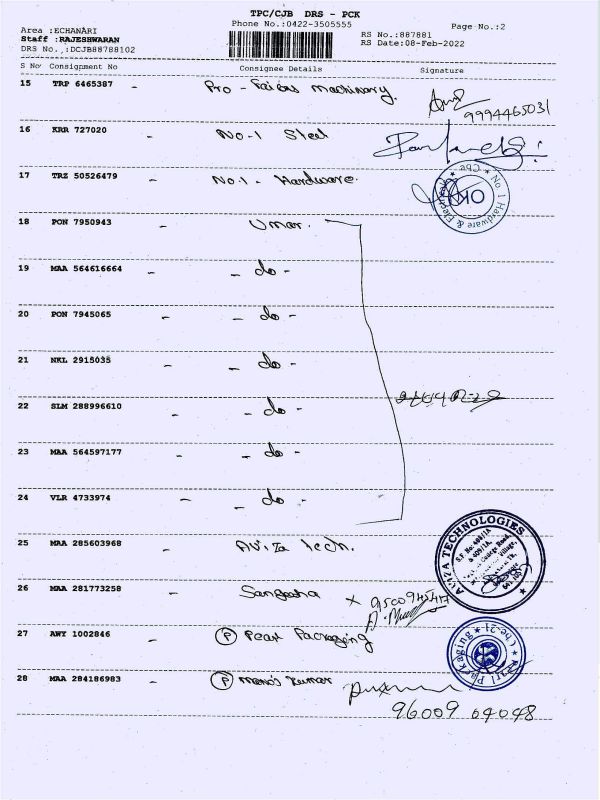 TPC/CJB DRS - PCK
Phone No.:0422-3505555
Page No.:2
Area :ECHANARI
Staff :RAJESHWARAN
DRS No.,:DCJB88788102
RS No.:887881
RS Date:08-Feb-2022
S No Consignment No Consignee Details Signature
15 TRP 6465387 - Pro - Machinary.
9994465031
16 KRR 727020 - No-1 Steel
17 TRZ 50526479 - No.1- Hardware
No 1 Hardware & Electricals Cbe
OK
18 PON 7950943 - Umar.
19 MAA 564616664 - - do -
20 PON 7945065 - - do -
21 NKL 2915035 - - do -
22 SLM 288996610 - - do -
23 MAA 564597177 - - do -
24 VLR 4733974 - - do -
25 MAA 285603968 - Aviza Tech.
AVIZA TECHNOLOGIES
26 MAA 281773258 - Sangeetha X
27 AWY 1002846 - P Pearl Packaging
Pearl Packagings Cbe-21
28 MAA 284186983 P Manoj Kumar
96009 64048